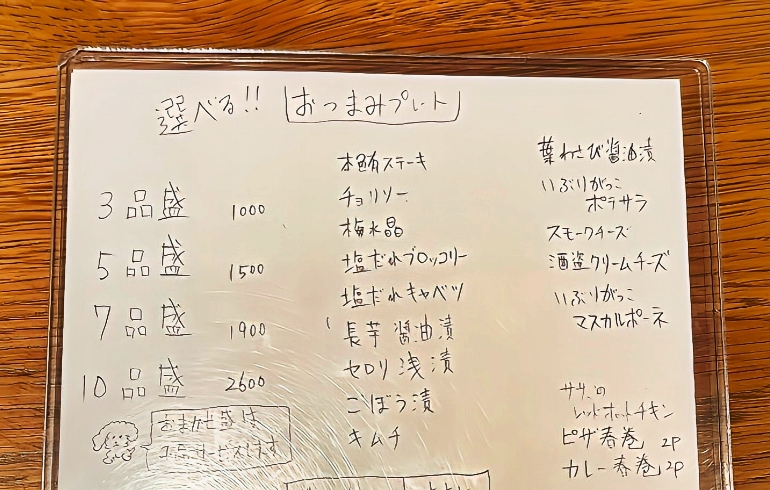 選べる!! おつまみプレート
3品盛 1000
5品盛 1500
7品盛 1900
10品盛 2600
おまかせ盛は
本鮪ステーキ
チョリソー
梅水晶
塩だれブロッコリー
塩だれキャベツ
長芋醤油漬
セロリ浅漬
ごぼう漬
キムチ
葉わさび醤油漬
いぶりがっこ
ポテサラ
スモークチーズ
酒盗クリームチーズ
いぶりがっこ
マスカルポーネ
レッドホットチキン
ピザ春巻 2P
カレー春巻 2P